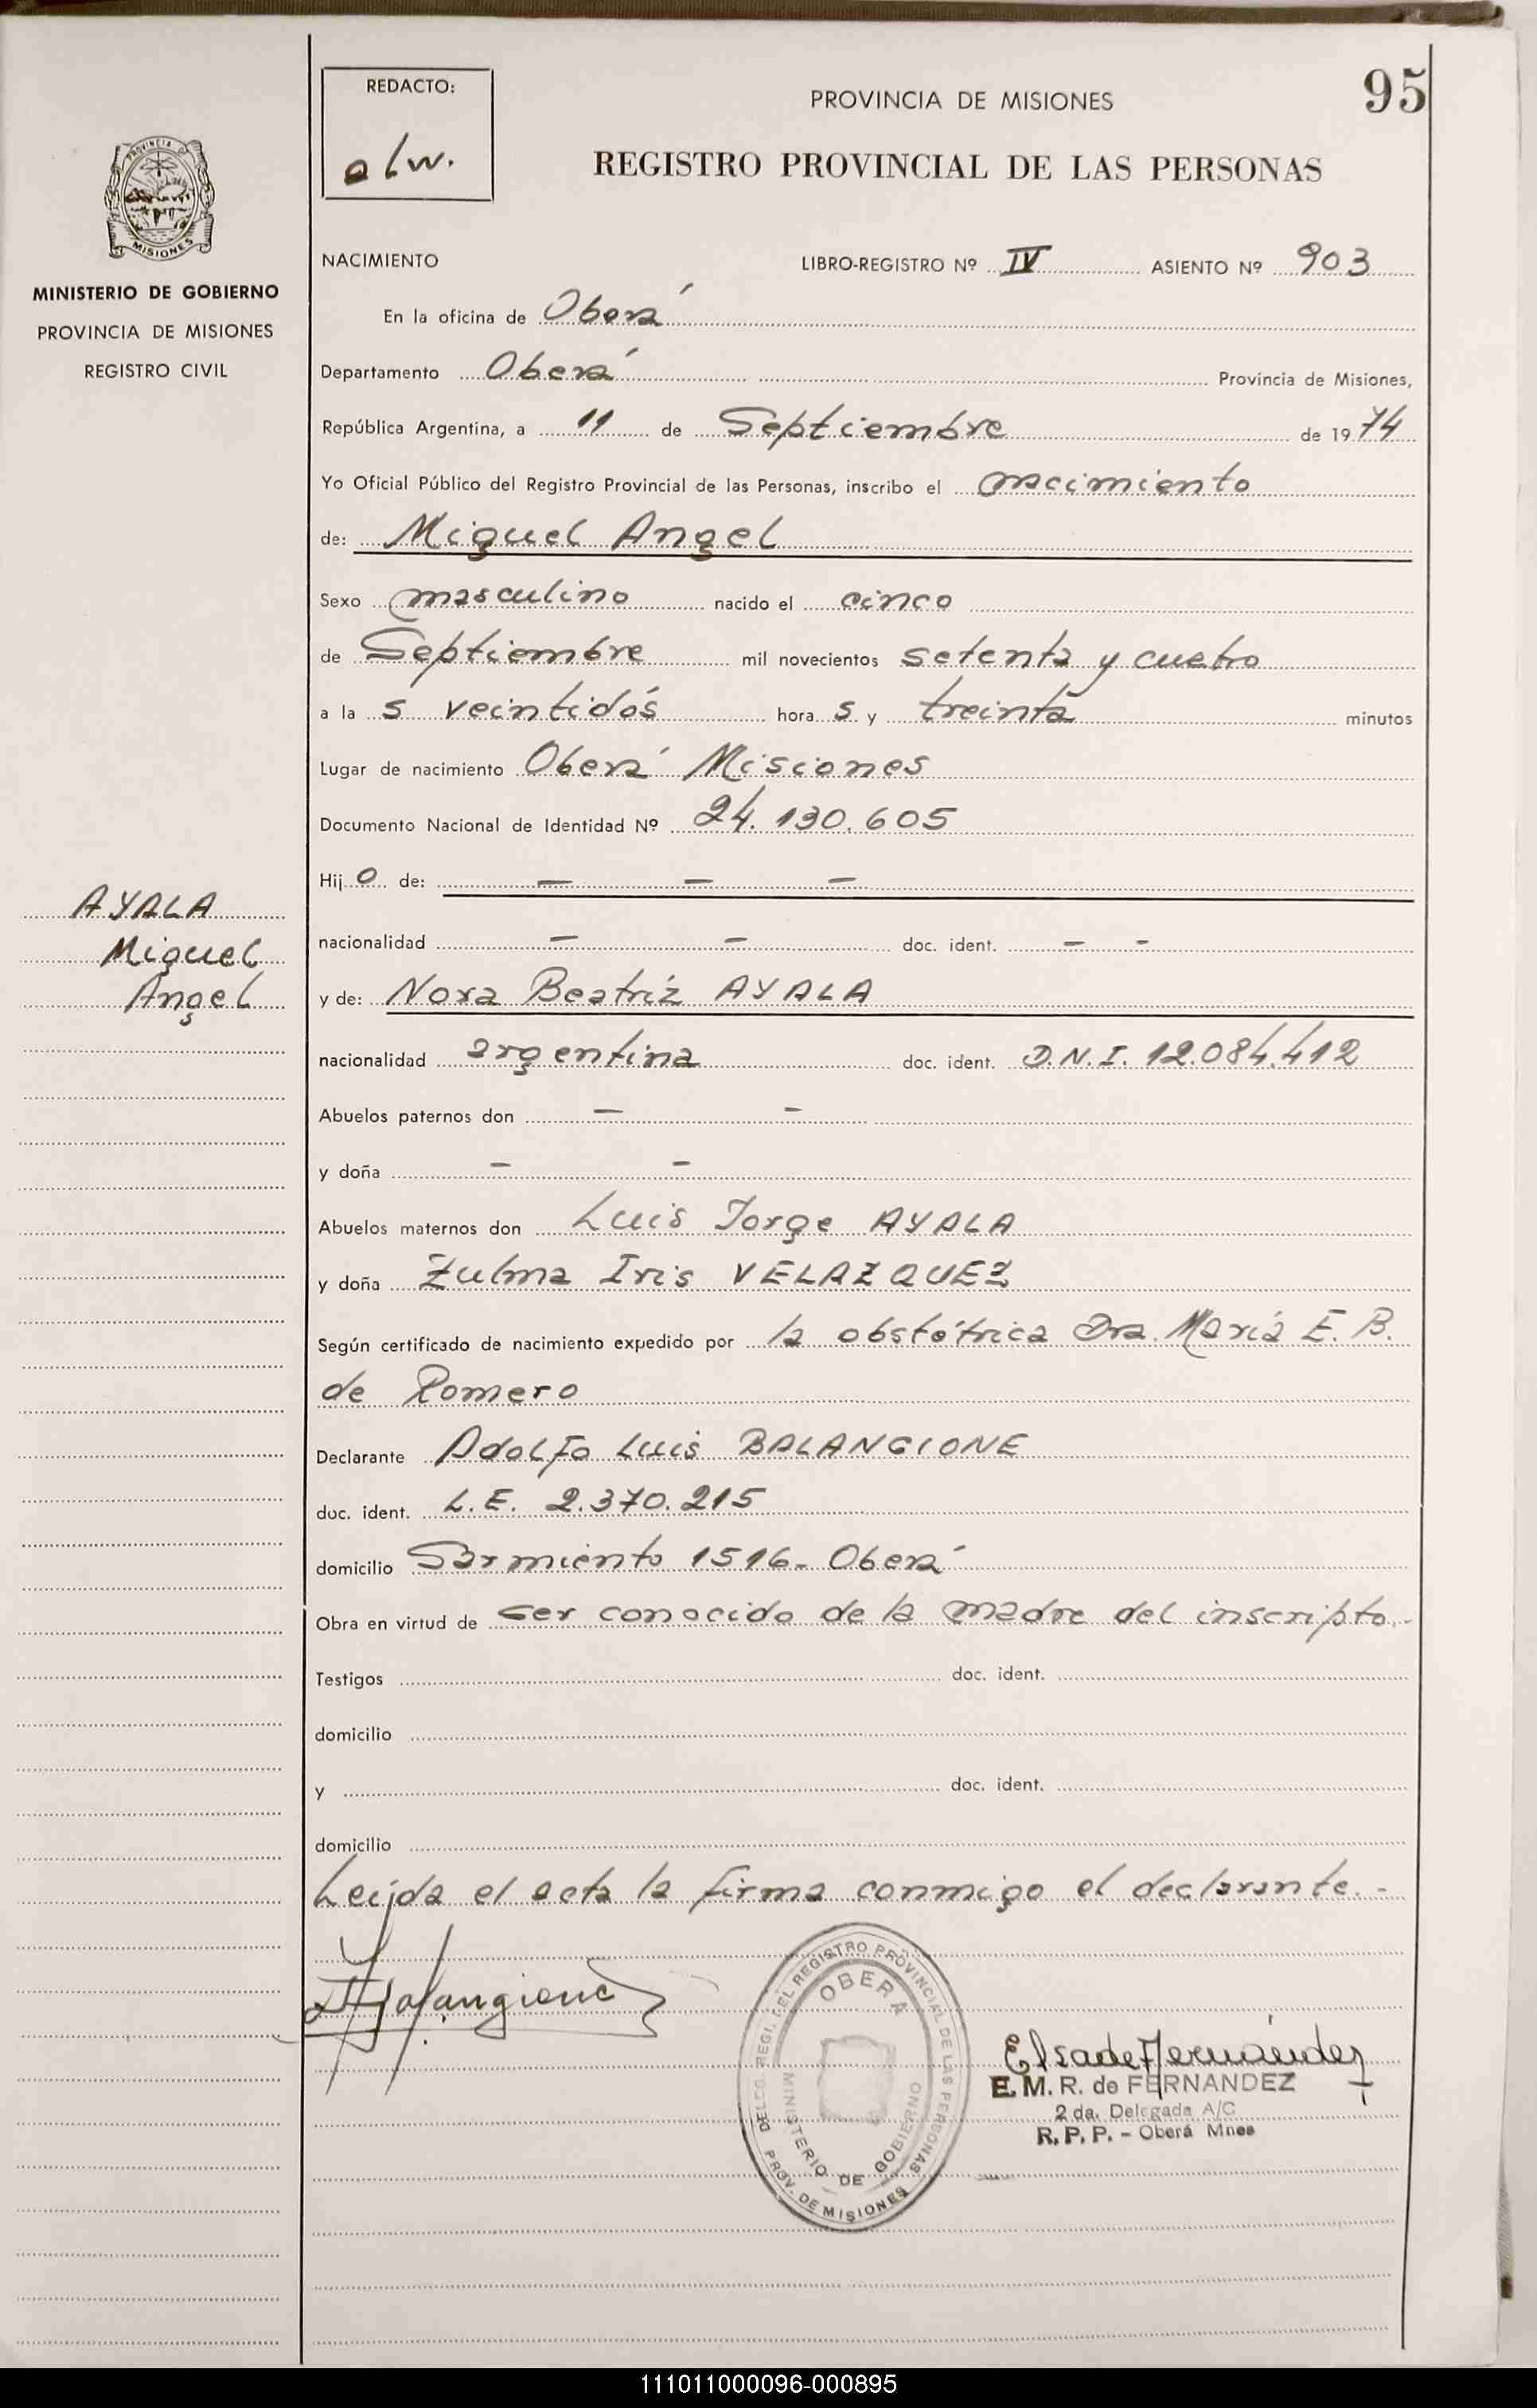 95
REDACTO:
alw.
PROVINCIA DE MISIONES
REGISTRO PROVINCIAL DE LAS PERSONAS
PROVINCIA DE
MISIONES
MINISTERIO DE GOBIERNO
PROVINCIA DE MISIONES
REGISTRO CIVIL
NACIMIENTO LIBRO-REGISTRO Nº IV ASIENTO Nº 903
En la oficina de Oberá
Departamento Oberá Provincia de Misiones,
República Argentina, a 11 de Septiembre de 1974
Yo Oficial Público del Registro Provincial de las Personas, inscribo el nacimiento
de: Miguel Angel
Sexo masculino nacido el cinco
de Septiembre mil novecientos setenta y cuatro
a la s veintidós hora s y treinta minutos
Lugar de nacimiento Oberá Misiones
Documento Nacional de Identidad Nº 24.130.605
Hij o de: — — —
nacionalidad — — doc. ident. — -
y de: Nora Beatriz AYALA
nacionalidad argentina doc. ident. D.N.I. 12.084.412
Abuelos paternos don — -
y doña — -
Abuelos maternos don Luis Jorge AYALA
y doña Zulma Iris VELAZQUEZ
Según certificado de nacimiento expedido por la obstétrica Dra. María E. B.
de Romero
Declarante Adolfo Luis BALANGIONE
doc. ident. L.E. 2.370.215
domicilio Sarmiento 1516- Oberá
Obra en virtud de ser conocido de la madre del inscripto.-
Testigos doc. ident.
domicilio
y doc. ident.
domicilio
Leída el acta la firma conmigo el declarante.-
AYALA
Miguel
Angel
Balangione
DELEG. REGI. DEL REGISTRO PROVINCIAL DE LAS PERSONAS
OBERA
MINISTERIO DE GOBIERNO
PROV. DE MISIONES
Elsa de Fernández
E. M. R. de FERNANDEZ
2 da. Delegada A/C
R. P. P. - Oberá Mnes
111011000096-000895